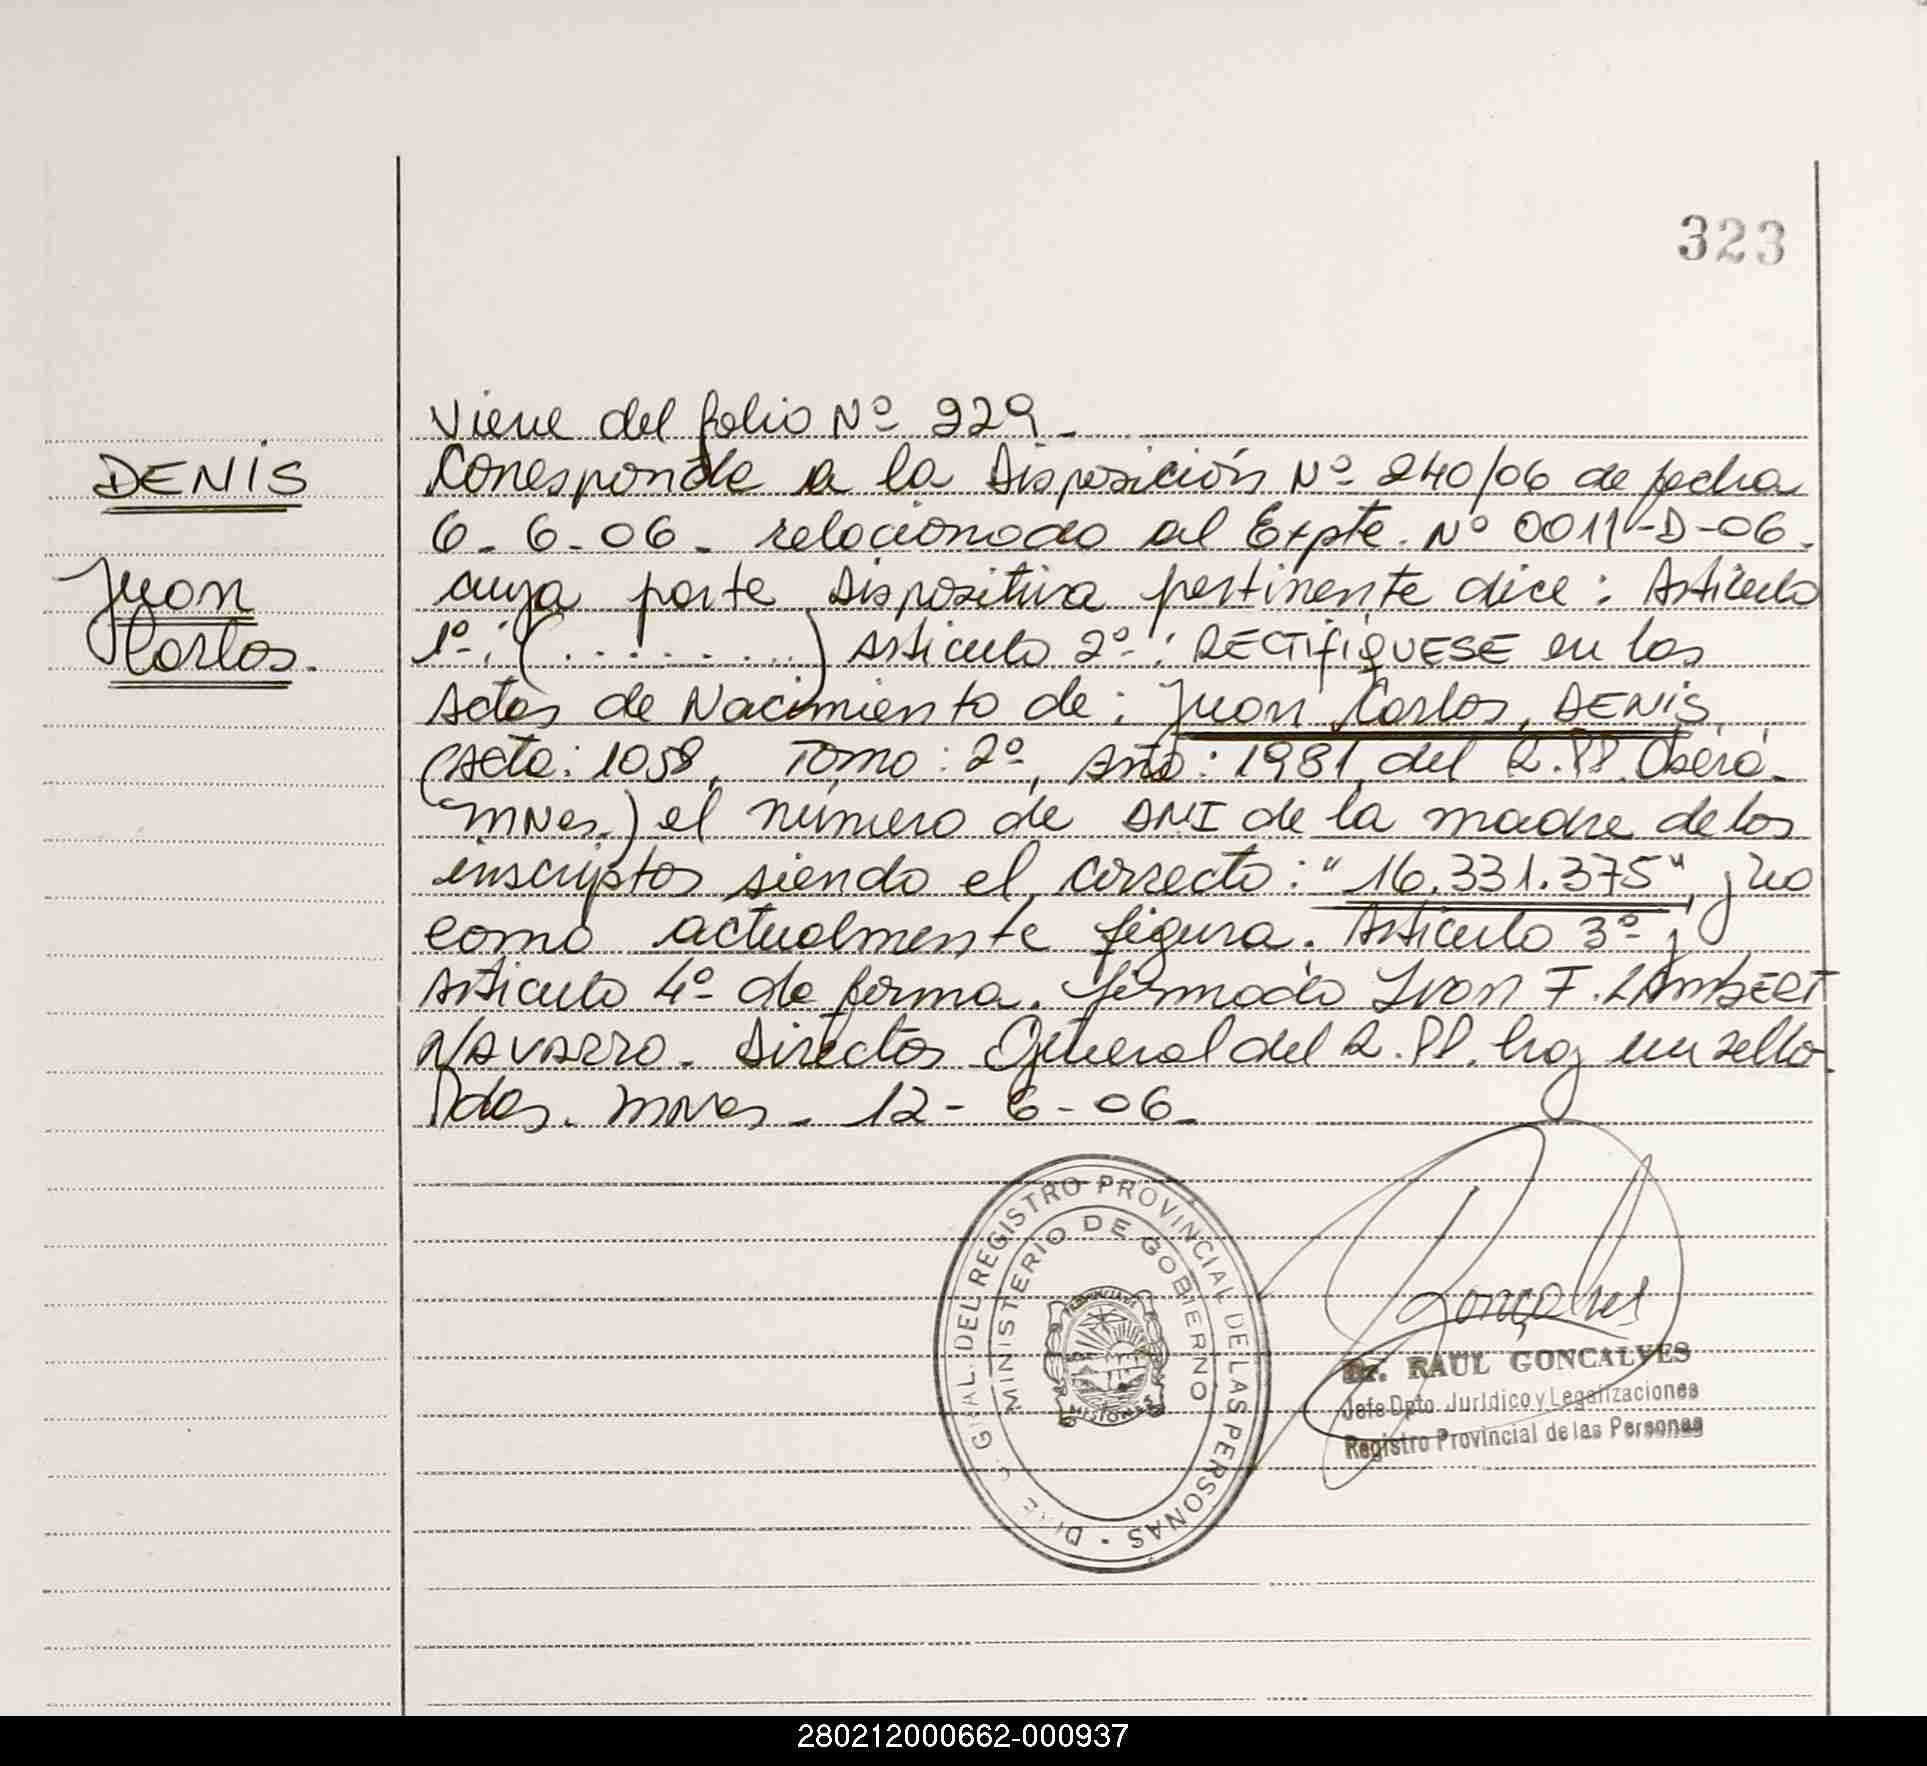 323
Viene del folio Nº 229.
DENIS
Corresponde a la Disposición Nº 240/06 de fecha
6-6-06- relacionado al Expte. Nº 0011-D-06.
Juan
cuya parte Dispositiva pertinente dice: Artículo
Carlos.
1º: (........) Artículo 2º: RECTIFIQUESE en las
Actas de Nacimiento de: Juan Carlos, DENIS,
(Acta: 1058, Tomo: 2º, Año: 1981, del R.PP. Oberá.
Mnes.) el número de DNI de la madre de los
inscriptos siendo el correcto: "16.331.375" y no
como actualmente figura. Artículo 3º y
Artículo 4º de forma. firmado Ivan F. LAMBERT
NAVARRO. Director General del R.PP. hay un sello
Pdas. Mnes. 12-6-06.
GRAL. DEL REGISTRO PROVINCIAL DE LAS PERSONAS
MINISTERIO DE GOBIERNO
MISIONES
Gonçalves
Dr. RAUL GONCALVES
Jefe Dpto. Jurídico y Legalizaciones
Registro Provincial de las Personas
280212000662-000937